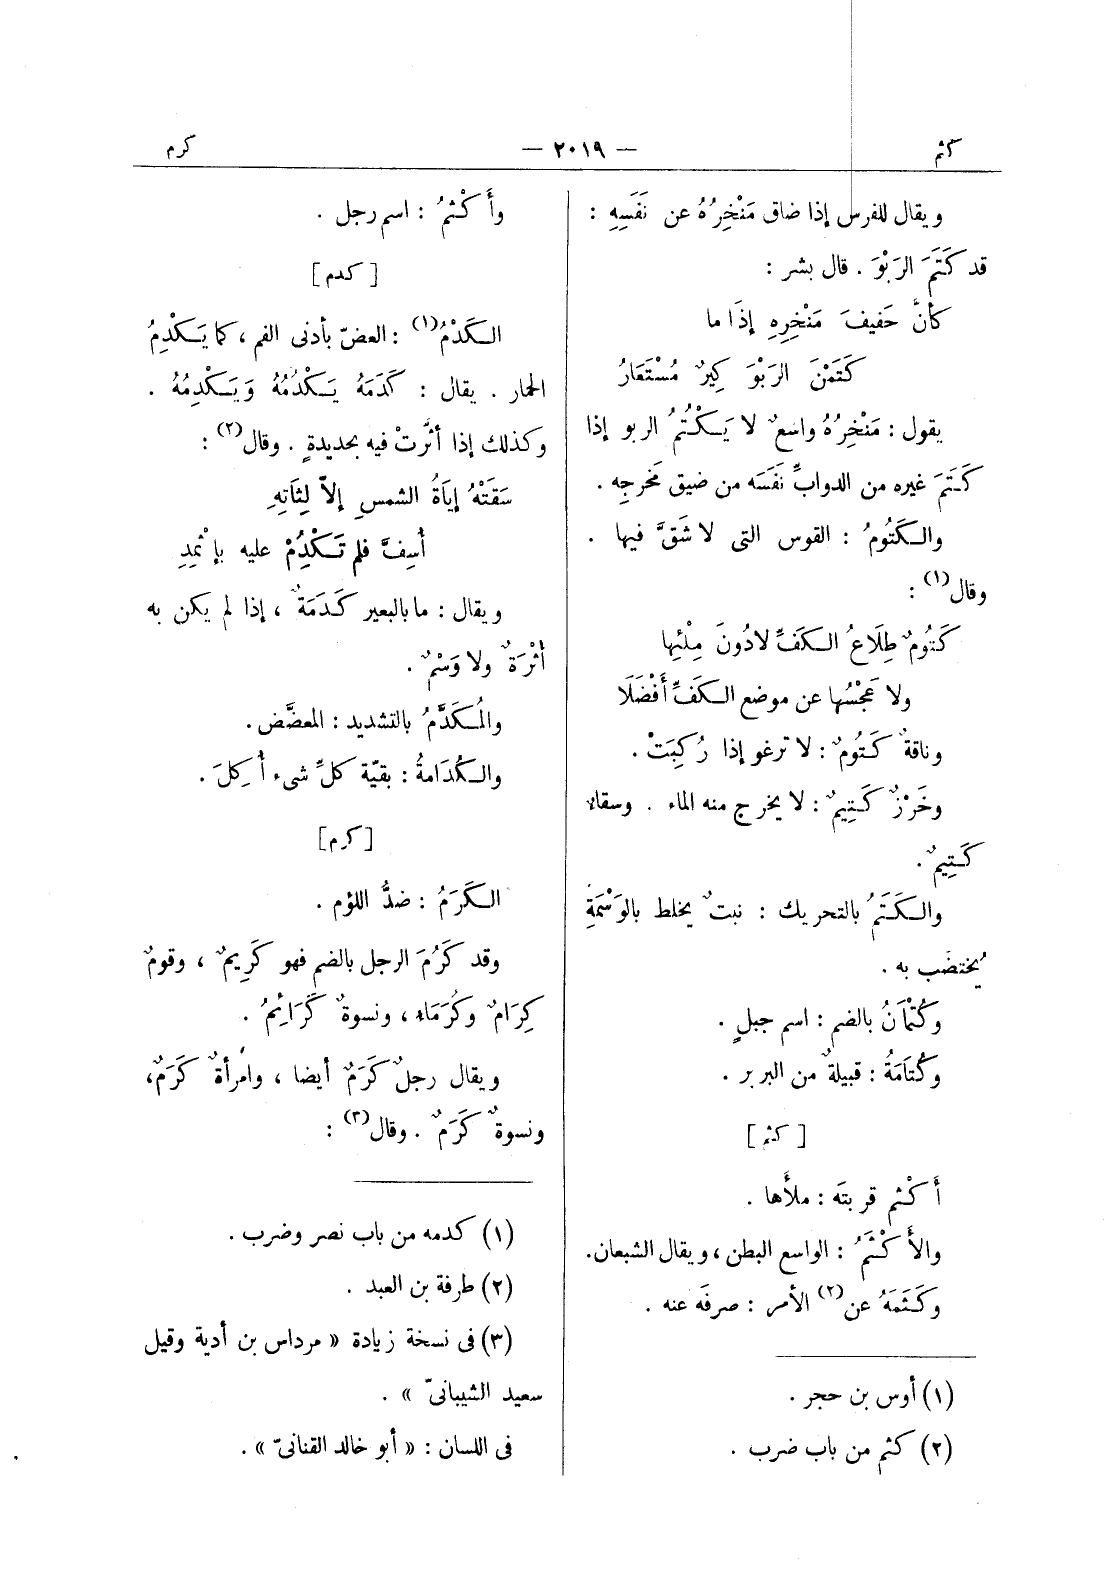 كثم
— ٢٠١٩ —
كرم
ويقال للفرس إذا ضاق مَنْخِرُهُ عن نَفَسِهِ :
قد كَتَمَ الرَبْوَ . قال بشر :
كأنَّ حَفيفَ مَنْخِرِهِ إذَا ما
كَتَمْنَ الرَبْوَ كِيرٌ مُسْتَعَارُ
يقول : مَنْخِرُهُ واسعٌ لا يَكْتُمُ الربو إذا
كَتَمَ غيره من الدوابِّ نَفَسَه من ضيق مَخرجِه .
والكَتُومُ : القوس التى لا شَقَّ فيها .
وقال(١) :
كَتُومٌ طِلَاعُ الكفِّ لا دُونَ مِلْئِها
ولا عَجْسُها عن موضع الكَفِّ أَفْضَلَا
وناقةٌ كَتُومٌ : لا ترغو إذا رُكِبَتْ .
وخَرْزٌ كَتِيمٌ : لا يخرج منه الماء . وسقاء
كَتِيمٌ .
والكَتَمُ بالتحريك : نبتٌ يخلط بالوَسْمَةِ
يُختضَب به .
وكُتْمَانُ بالضم : اسم جبلٍ .
وكُتَامَةُ : قبيلةٌ من البربر .
[ كثم ]
أَكْثم قربتَه : ملأَها .
والأَكْثَمُ : الواسع البطن ، ويقال الشبعان.
وكَثَمَهُ عن(٢) الأمر : صرفَه عنه .
(١) أوس بن حجر .
(٢) كثم من باب ضرب .
وأَكْثمُ : اسم رجل .
[ كدم ]
الكَدْمُ(١) : العضّ بأدنى الفم ، كما يَكْدِمُ
الحمار . يقال : كَدَمَهُ يَكْدُمُهُ وَيَكْدِمُهُ .
وكذلك إذا أثَّرتْ فيه بحديدةٍ . وقال(٢) :
سَقَتْهُ إيَاةُ الشمسِ إلاّ لِثَاتِهِ
أُسِفَّ فلم تَكْدِمْ عليه بإثْمِدِ
ويقال : ما بالبعير كَدَمَةٌ ، إذا لم يكن به
أُثْرَةٌ ولا وَسْمٌ .
والمُكَدَّمُ بالتشديد : المعضَّض .
والكُدَامةُ : بقيّة كلِّ شىء أُكِلَ .
[كرم]
الكَرَمُ : ضدُّ اللؤم .
وقد كَرُمَ الرجل بالضم فهو كَرِيمٌ ، وقومٌ
كِرَامٌ وكُرَمَاء ، ونسوةٌ كَرَائِمُ .
ويقال رجلٌ كَرَمٌ أيضا ، وامْرأةٌ كَرَمٌ ،
ونسوةٌ كَرَمٌ . وقال(٣) :
(١) كدمه من باب نصر وضرب .
(٢) طرفة بن العبد .
(٣) فى نسخة زيادة « مرداس بن أدية وقيل
سعيد الشيبانىّ » .
فى اللسان : « أبو خالد القنانىّ » .